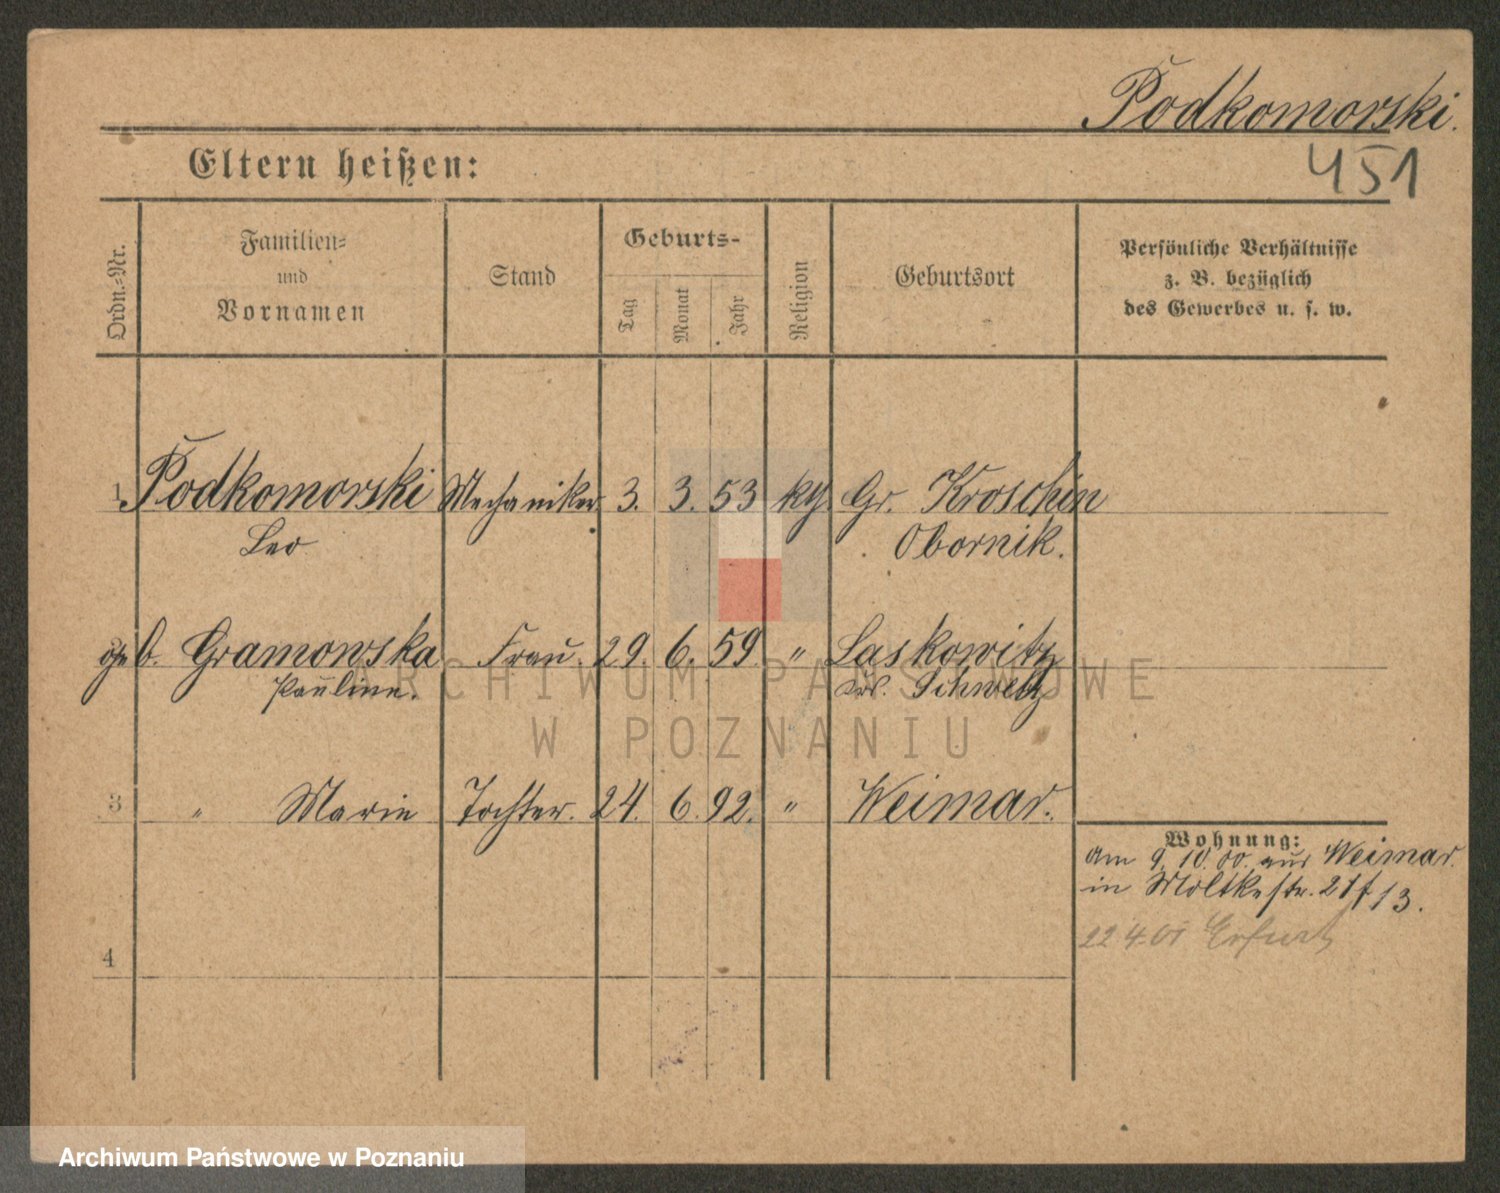 Podkomorski.
451
Eltern heißen:
Ordn.-Nr.
Familien-
und
Vornamen
Stand
Geburts-
Tag
Monat
Jahr
Religion
Geburtsort
Persönliche Verhältnisse
z. B. bezüglich
des Gewerbes u. s. w.
1 Podkomorski Mechaniker 3. 3. 53 kg. Gr. Kroschin
Leo Obornik.
2 geb. Gramowska Frau. 29. 6. 59 " Laskowitz
Pauline. Krs. Schwetz
3 " Marie Tochter. 24. 6. 92. " Weimar.
Wohnung:
Am 9. 10. 00. aus Weimar.
in Moltkestr. 21 f 13.
22 4. 01 Erfurt
4
ARCHIWUM PAŃSTWOWE
W POZNANIU
Archiwum Państwowe w Poznaniu